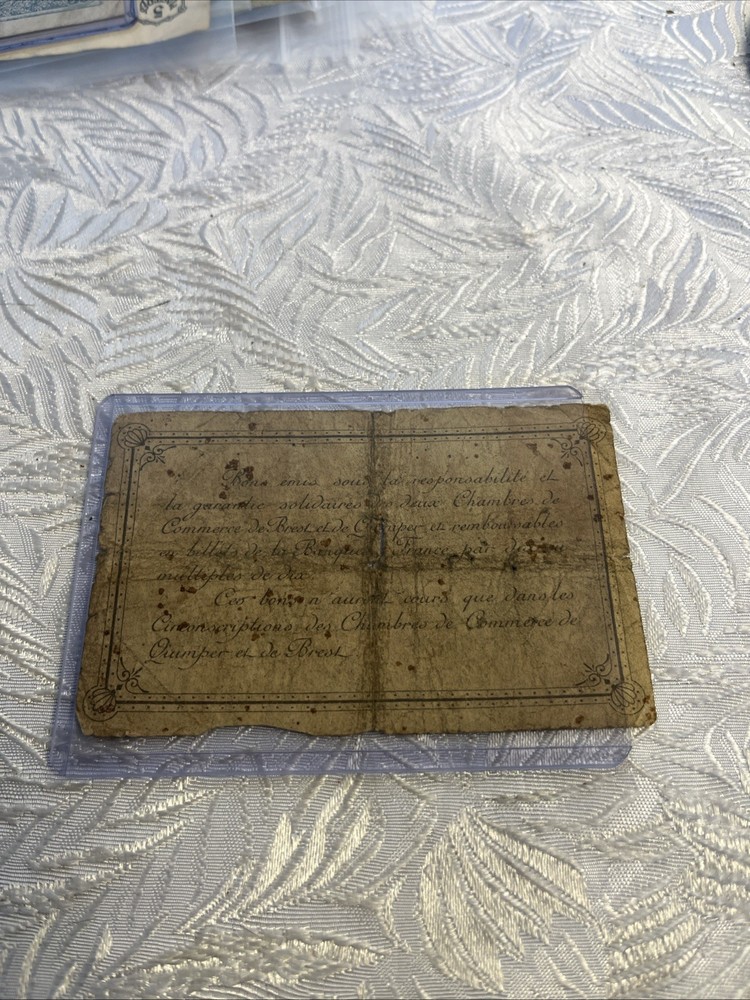 5
Bons emis sous la responsabilité et
la garantie solidaires des deux Chambres de
Commerce de Brest et de Quimper et remboursables
en billets de la Banque France par
multiples de dix.
Ces bons n'auront cours que dans les
Circonscriptions des Chambres de Commerce de
Quimper et de Brest